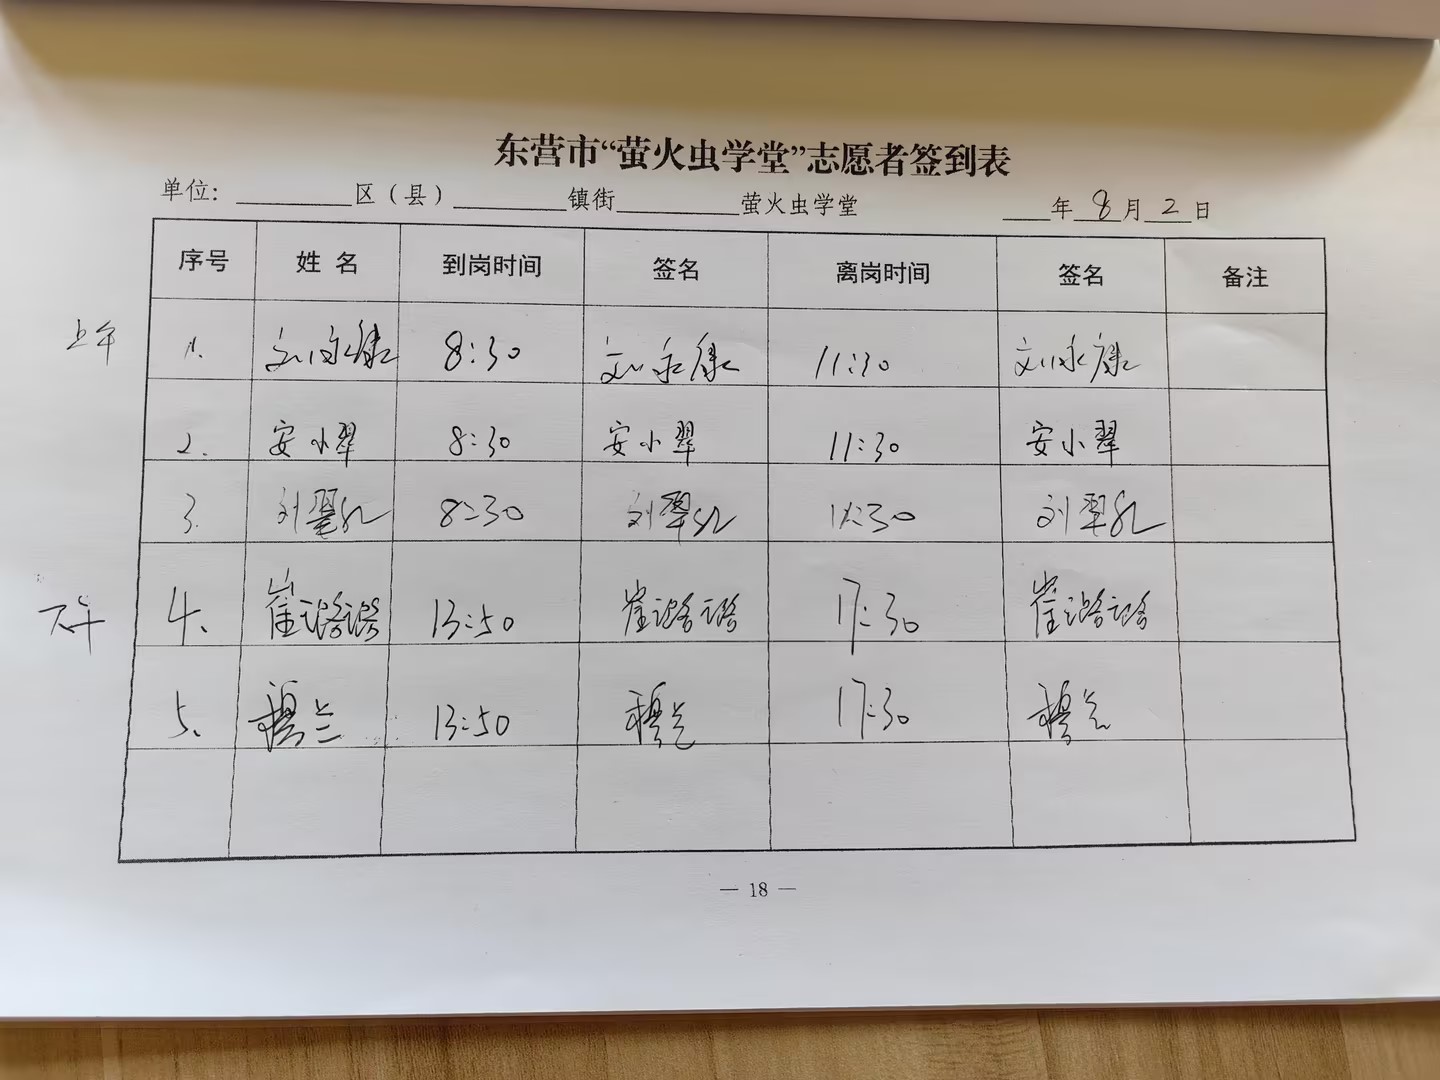 东营市“萤火虫学堂”志愿者签到表
单位：________区（县）________镇街________萤火虫学堂 ____年 8 月 2 日
序号 姓名 到岗时间 签名 离岗时间 签名 备注
上午 1. 刘永康 8:30 刘永康 11:30 刘永康
2. 安小翠 8:30 安小翠 11:30 安小翠
3. 刘翠 8:30 刘翠 11:30 刘翠
下午 4. 崔璐璐 13:50 崔璐璐 17:30 崔璐璐
5. 穆兰 13:50 穆兰 17:30 穆兰
— 18 —